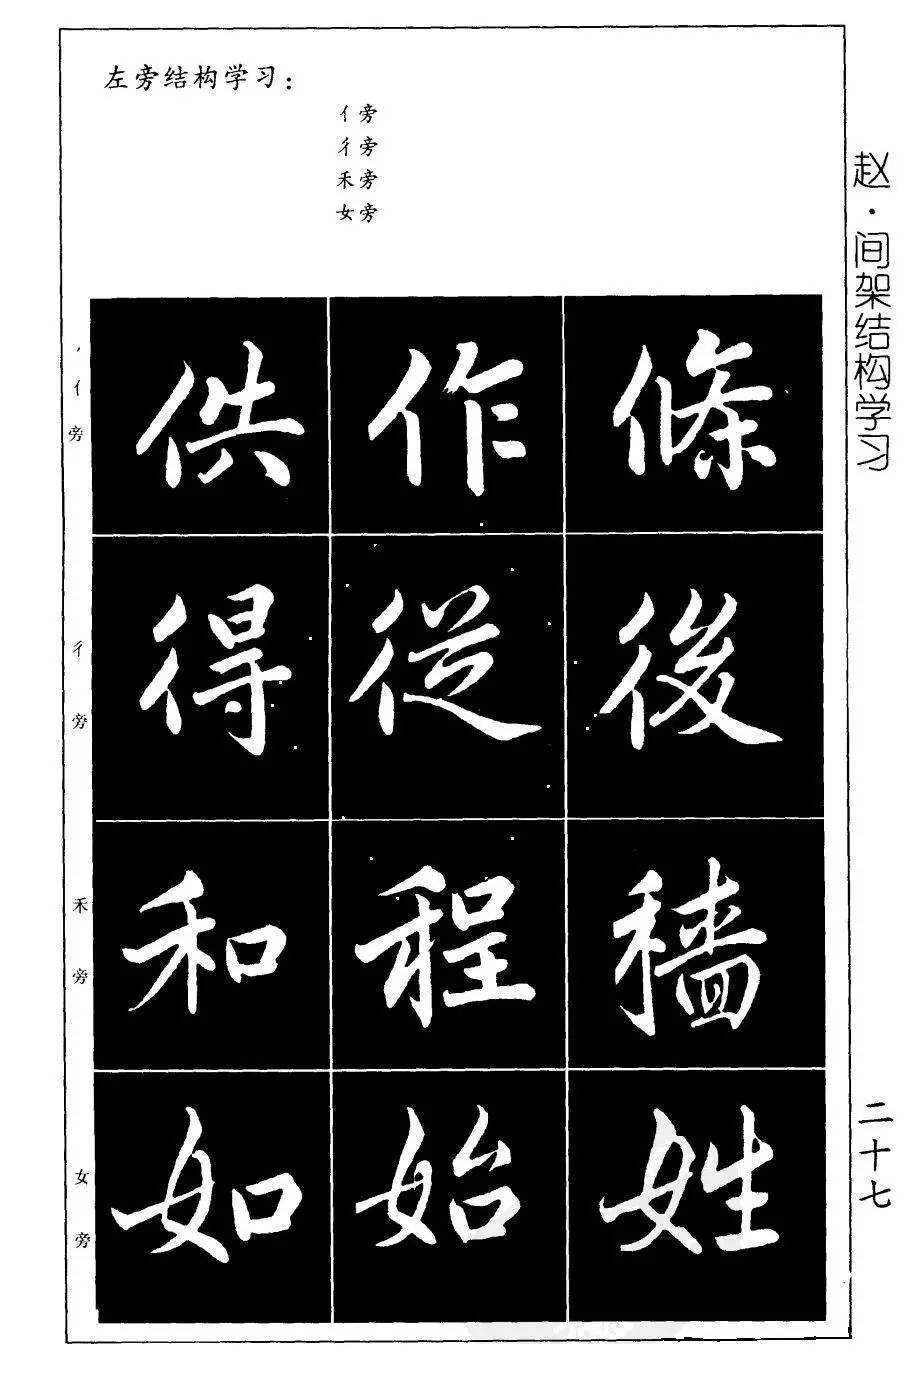 左旁结构学习：
亻旁
彳旁
禾旁
女旁
亻旁
供作條
彳旁
得從後
禾旁
和程穡
女旁
如始姓
赵·间架结构学习
二十七